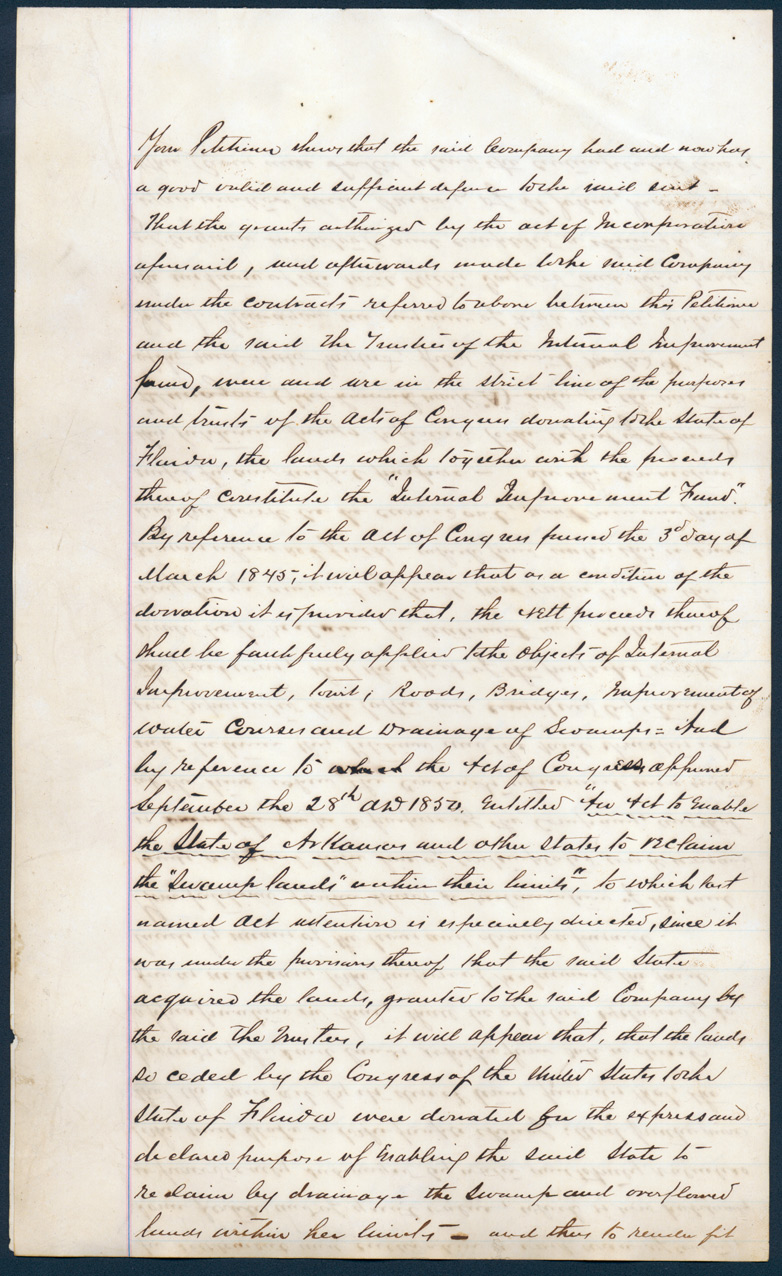 Your Petitioner shews that the said Company had and now has
a good valid and sufficient defence to the said suit -
That the grants authorized by the act of Incorporation
aforesaid, and afterwards made to the said Company
under the contracts referred to above between this Petitioner
and the said The Trustees of the Internal Improvement
fund, were and are in the strict line of the purposes
and trusts of the Acts of Congress donating to the State of
Florida, the lands which together with the proceeds
thereof constitute the "Internal Improvement Fund".
By reference to the Act of Congress passed the 3d day of
March 1845, it will appear that as a condition of the
donation it is provided that, the nett proceeds thereof
shall be faithfully applied to the objects of Internal
Improvement, towit; Roads, Bridges, Improvement of
water Courses and Drainage of Swamps = And
by reference to the Act of Congress approved
September the 28th AD 1850. Entitled "An Act to Enable
the State of Arkansas and other States to reclaim
the "Swamp lands" within their limits", to which last
named Act attention is especially directed, since it
was under the provisions thereof that the said State
acquired the lands, granted to the said Company by
the said The Trustees, it will appear that, that the lands
so ceded by the Congress of the United States to the
State of Florida were donated for the express and
declared purpose of Enabling the said State to
reclaim by drainage the Swamp and overflowed
lands within her limits - and thus to render fit